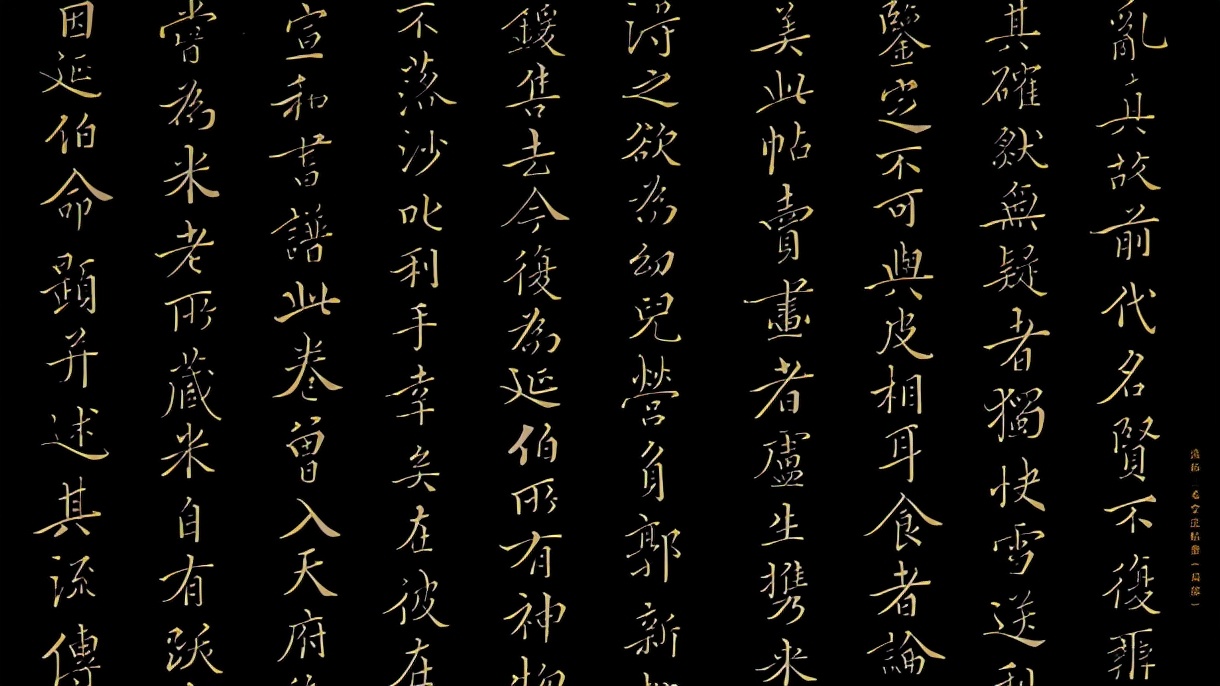 亂真故前代名賢不復辨
其確然無疑者獨快雪送
鑒定不可與皮相耳食者論
美此帖賣畫者盧生攜來
得之欲為幼兒營負郭新
鍰售去今復為延伯所有神物
不落沙叱利手幸矣在彼在
宣和書譜此卷曾入天府
嘗為米老所藏米自有跋
因延伯命題并述其流傳